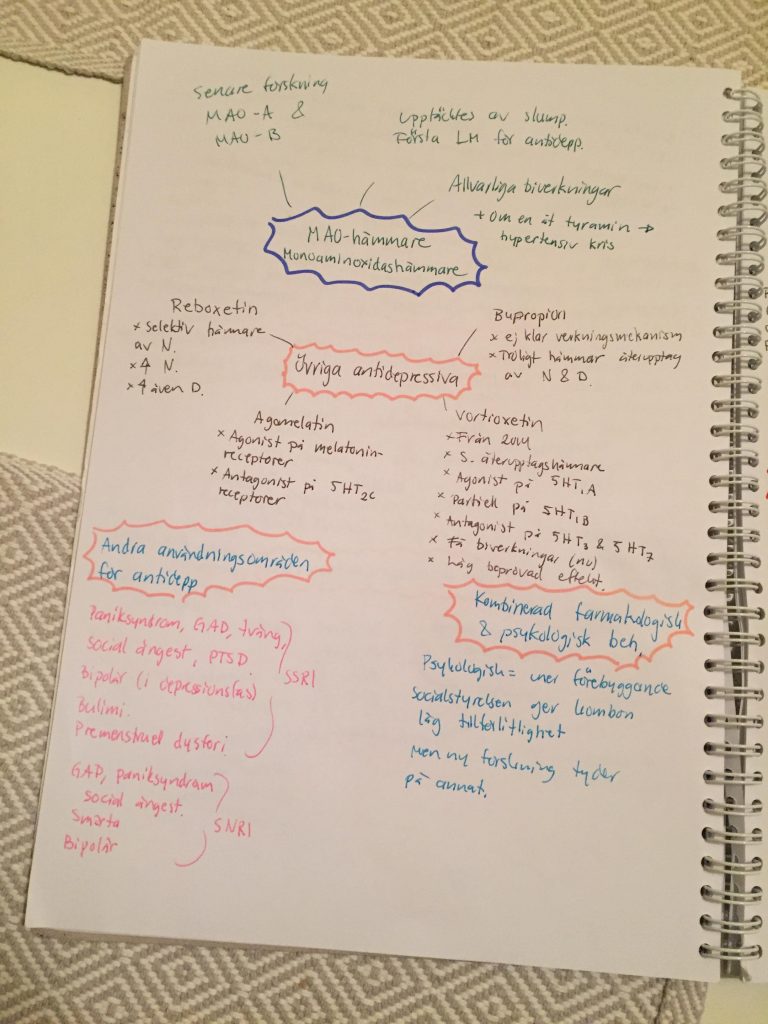 Senare forskning
MAO-A &
MAO-B
Upptäcktes av slump.
Första LM för antidepp.
Allvarliga biverkningar
+ om en åt tyramin →
hypertensiv kris
MAO-hämmare
Monoaminoxidashämmare
Reboxetin
× Selektiv hämmare
av N.
× 4 N.
× 4 även D.
Bupropion
× ej klar verkningsmekanism
× Troligt hämmar återupptag
av N & D.
Övriga antidepressiva
Agomelatin
× Agonist på melatonin-
receptorer
× Antagonist på 5HT2C
receptorer
Vortroxetin
× Från 2014
× S-återupptagshämmare
× Agonist på 5HT1A
× Partiell på 5HT1B
× Antagonist på 5HT3 & 5HT7
× Få biverkningar (nu)
× Låg beprövad effekt.
Andra användningsområden
för antidepp
Paniksyndrom, GAD, tvång,
social ångest, PTSD
Bipolär (i depressionsfas)
Bulimi.
Premenstruel dysfori.
SSRI
GAD, paniksyndrom
social ångest.
Smärta
Bipolär
SNRI
Kombinerad farmakologisk
& psykologisk beh.
Psykologisk = mer förebyggande
Socialstyrelsen ger kombon
låg tillförlitlighet
Men ny forskning tyder
på annat.